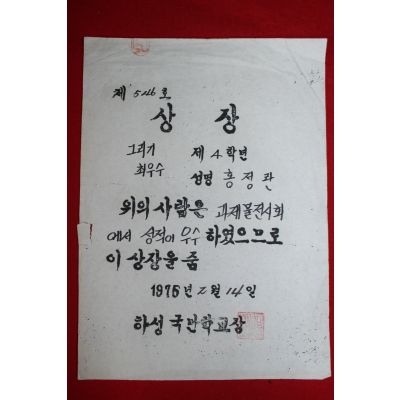 제 546 호
상 장
그리기 제 4 학년
최우수 성명 홍정관
위의 사람은 과제물전시회
에서 성적이 우수 하였으므로
이 상장을 줌
1976 년 2 월 14 일
하성 국민학교장